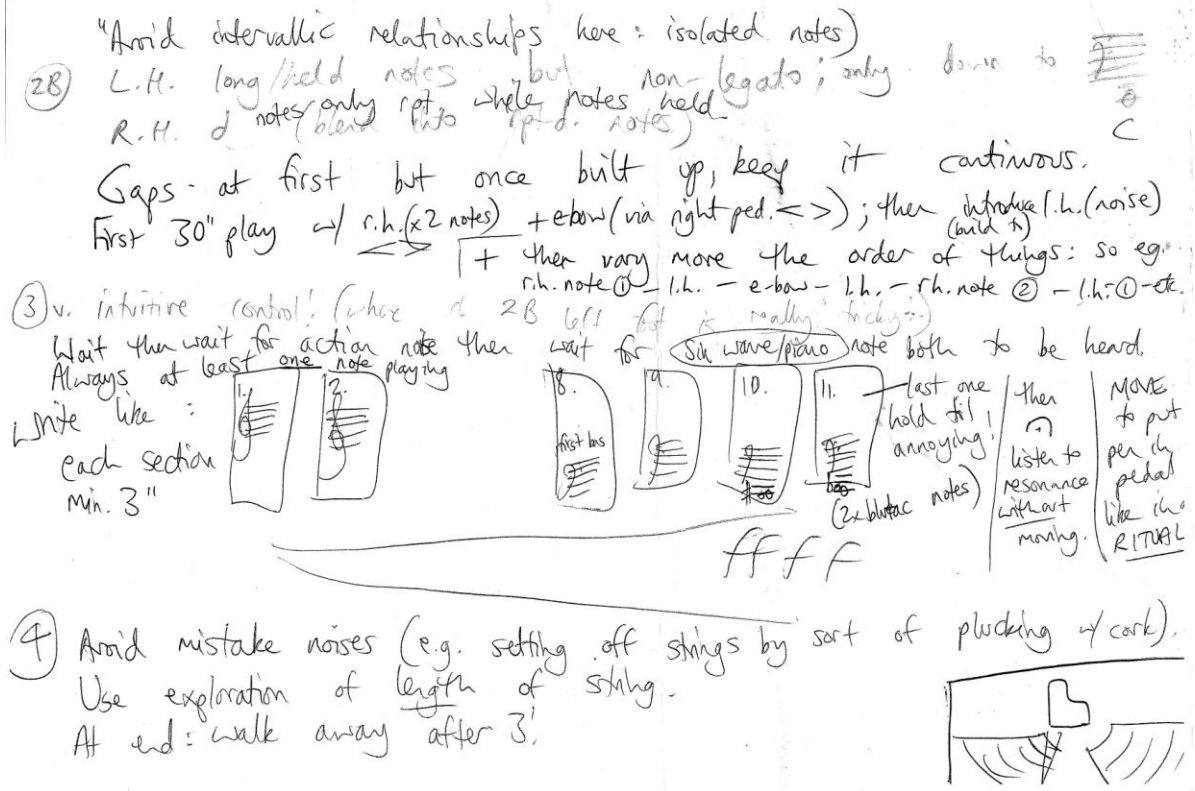 "Avoid intervallic relationships here: isolated notes)
2B L.H. long/held notes but non-legato; only down to
C
R.H. d notes only rpt. whole notes held
(blend into rpt-d. notes)
Gaps - at first but once built up, keep it continuous.
First 30" play w/ r.h. (x2 notes) + ebow (via right ped. < >); then introduce l.h. (noise)
(build to)
+ then vary more the order of things: so eg.
r.h. note ① - l.h. - e-bow - l.h. - r.h. note ② - l.h. ① - etc.
③ v. intuitive control! (where 2B left foot is really tricky...)
Wait then wait for action note then wait for sin wave/piano note both to be heard.
Always at least one note playing
Write like :
each section
min. 3"
1.
2.
8.
first bass
9.
10.
11.
last one
hold til
annoying!
(2x blutac notes)
then
listen to
resonance
without
moving.
MOVE
to put
pen in
pedal
like in
RITUAL
ffff
④ Avoid mistake noises (e.g. setting off strings by sort of plucking w/ cork).
Use exploration of length of string.
At end: walk away after 3'.